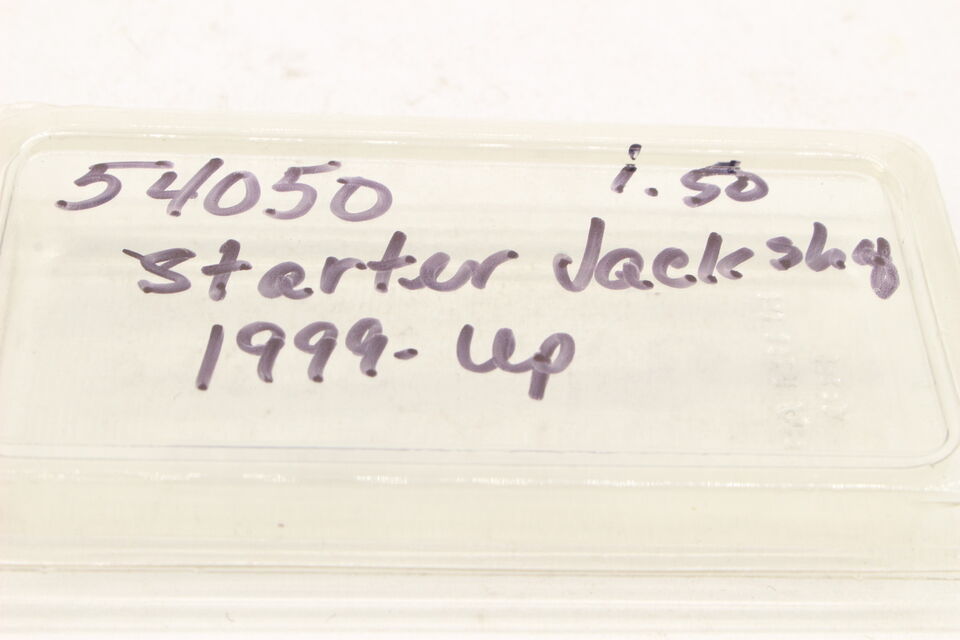 54050 1.50
Starter Jackshaf
1999-Up